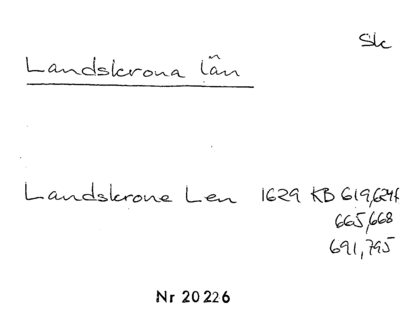 Sk
Landskrona län
Landskrone Len 1629 KB 619,624f
665,668
691,795
Nr 20226